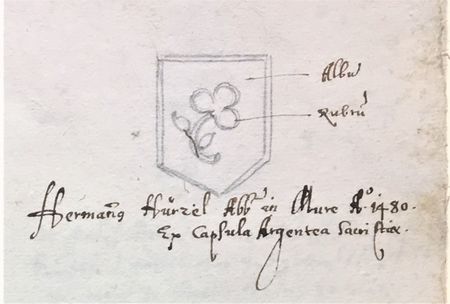 Albū
Rubrū
Hermañg Hürzel Abb: in Mure Aº 1480.
Ex Capsula Argentea Sacristiæ.